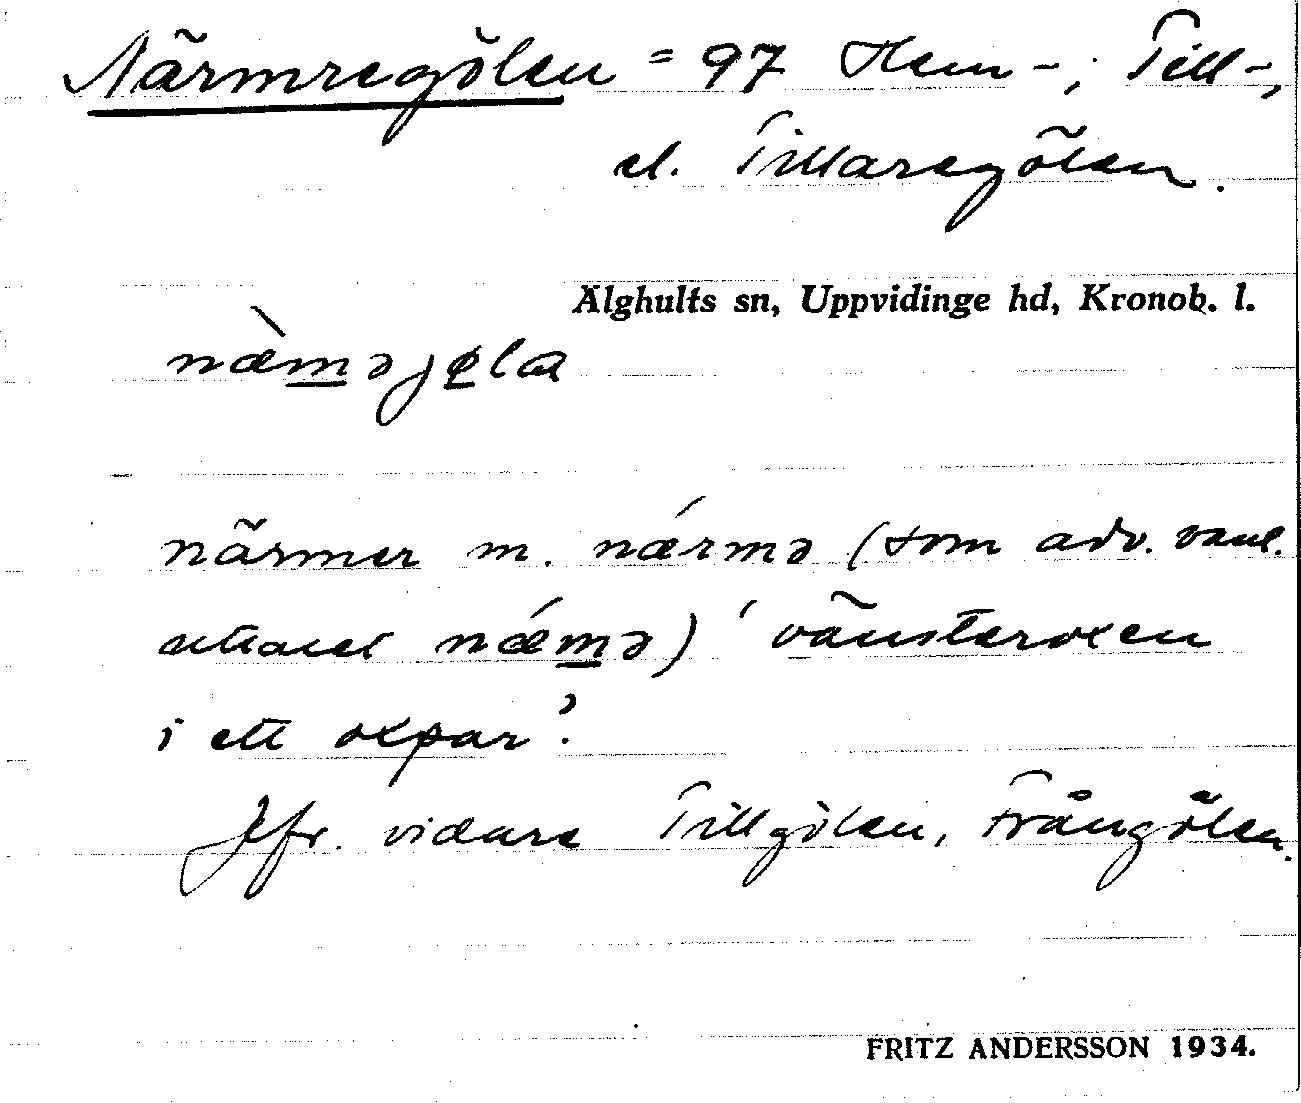 Närmregölen = 97 Hem-, Till-,
el. Tillaregölen.
Älghults sn, Uppvidinge hd, Kronob. l.
næ̀m̲əjø̲la
närmer m. nǽrmə (som adv. vanl.
uttalat nǽm̲ə) 'vänsteroxen
i ett oxpar'.
Jfr. vidare Tillgölen, Frångölen.
FRITZ ANDERSSON 1934.